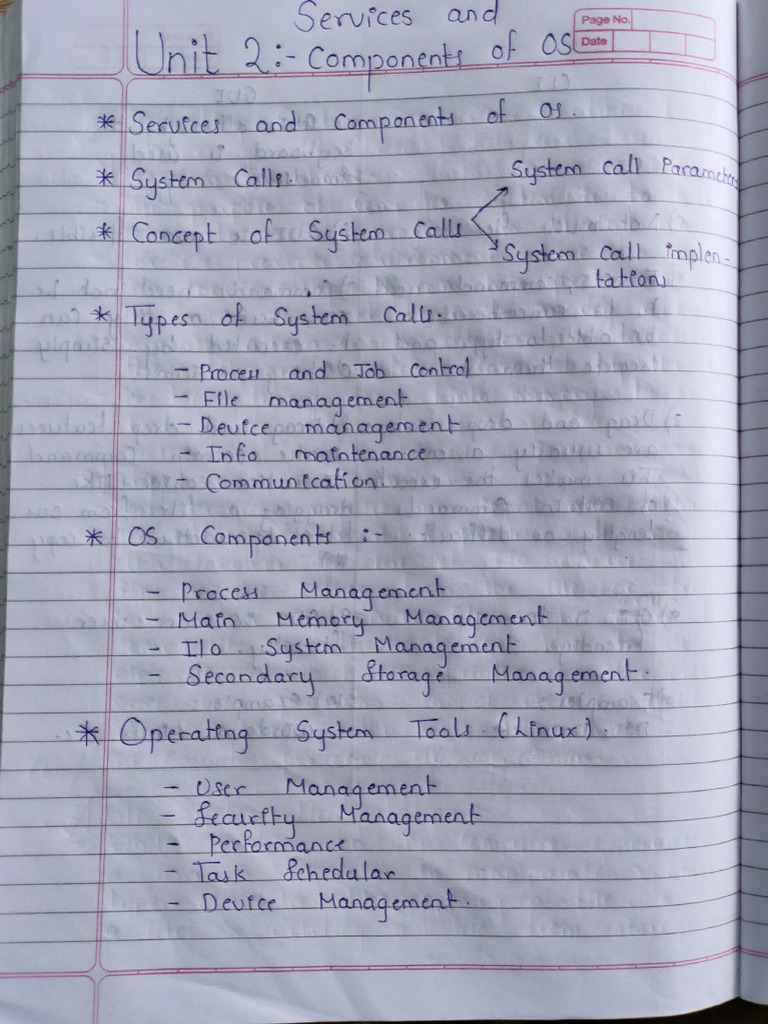 Services and
Unit 2:- Components of OS
Page No.
Date
* Services and Components of os.
* System Calls.
System Call Parameter
* Concept of System Calls
System Call implen-
tation
* Types of System Calls.
- Process and Job control
- File management
- Device management
- Info maintenance
- Communication.
* OS Components :-
- Process Management
- Main Memory Management
- I/o System Management
- Secondary Storage Management.
* Operating System Tools (Linux).
- User Management
- Security Management
- Performance
- Task Schedular
- Device Management.